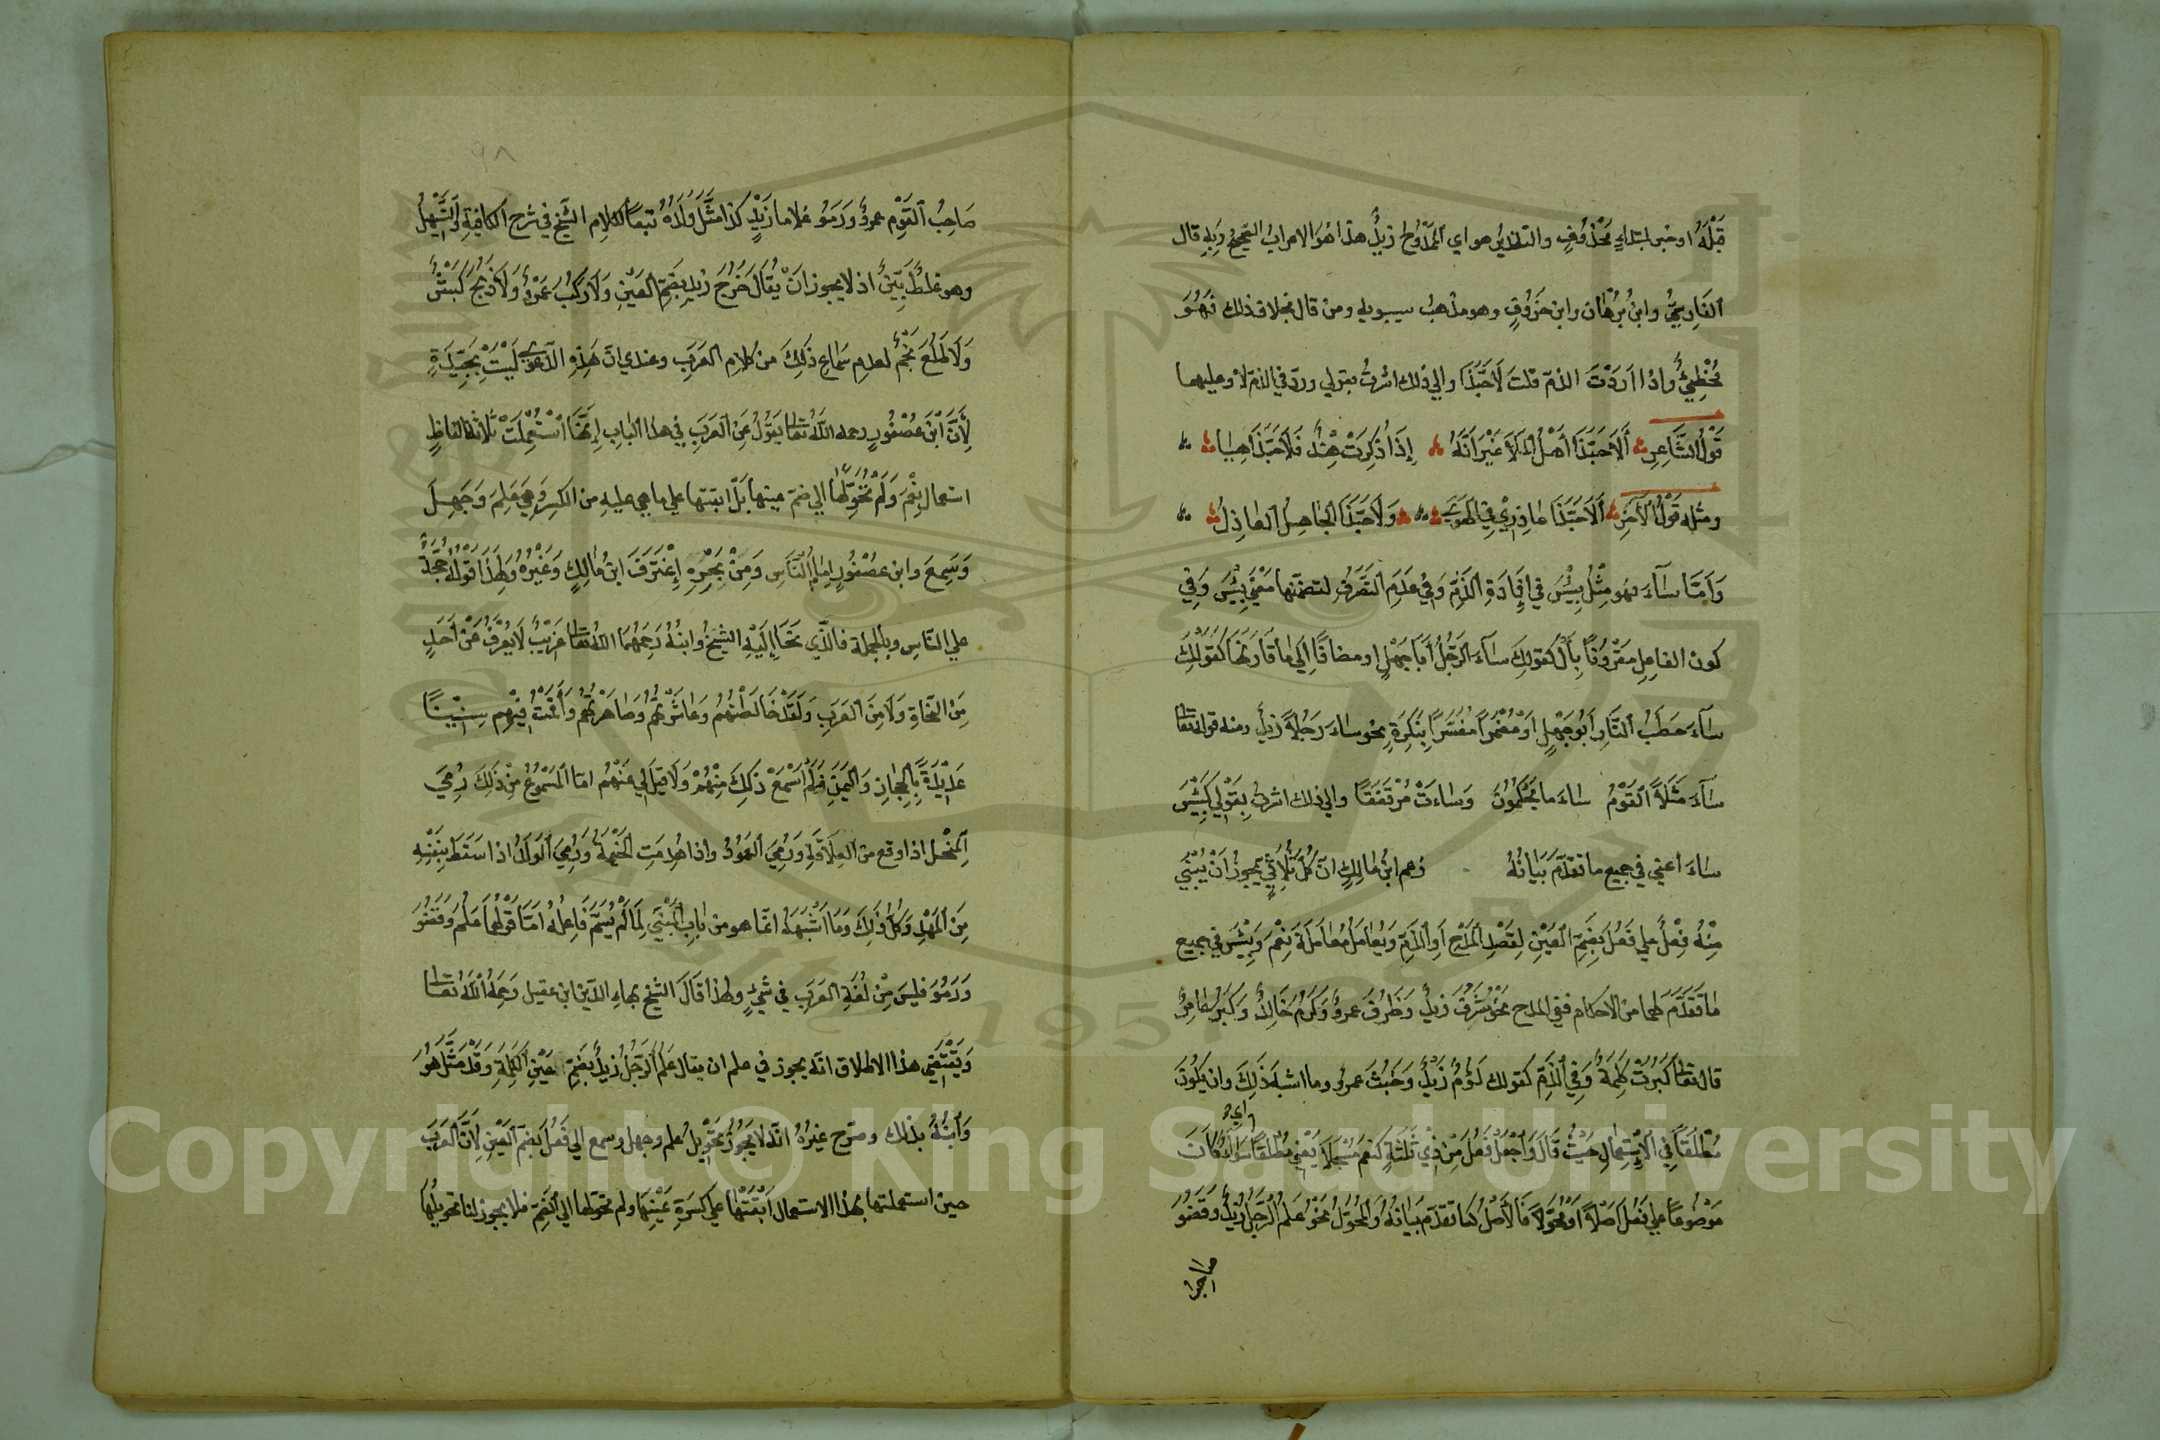 قَبْلَهُ اوخبر ابتداءٍ مَحْذُوفٍ والتقدير هو اي المَمْدُوح زيدٌ هذا هُوَ الاعرابُ الصَّحِيحُ وَبِهِ قال
الفَارِسِيُّ وابنُ بُرْهَان وابن خَرُوفٍ وهو مذهبُ سيبويه ومن قال بخلاف ذلك فَهُوَ
مُخْطِئٌ واذا اَرَدْتَ الذمّ قلت لَاحَبَّذَا والي ذلك اشرتُ بقولي وردّ في الذم لا وعليهما
قَوْلُ الشَّاعِرِ أَلَاحَبَّذَا أَهْلُ المَلَا غَيْرَ اَنَّهُ إِذَا ذُكِرَتْ هِنْدٌ فَلَاحَبَّذَا هِيَا
ومثله قَوْلُ الآخَرِ أَلَاحَبَّذَا عاذِرِيْ فِي الهَوَي وَلَاحَبَّذَا الجَاهِلُ العاذِلُ
وَاَمَّا سَآءَ فهو مِثْلُ بِئْسَ في اِفَادَةِ الذَّمِّ وَفي عَدَمِ التَّصَرُّفِ لتضمّنها مَعْنَي بِئْسَ وَفي
كون الفاعِلِ مَقْرُونًا بِأَلْ كقولك سَآءَ الرَّجُلُ أَبَاجَهْلٍ او مضافًا إِلَي مَا قَارَنَهَا كَقَوْلِكَ
سَآءَ حَطَبُ النَّارِ اَبُوجَهْلٍ اَوْ مُضْمَرًا مُفَسَّرًا بِنَكِرَةٍ نحو ساءَ رَجُلاً زيدٌ ومنه قوله تعَالى
سَآءَ مَثَلاً القَوْمُ ساءَ ما يَحْكُمُونَ وَسَاءَتْ مُرْتَفَقًا والي ذلك اشرتُ بِقَوْلِي كَبِئْسَ
ساءَ اعني في جميع ما تقدّم بَيَانُهُ زعم ابْنُ مالِكٍ انّ كُلَّ ثُلاثيٍّ يجوزُ اَنْ يُبْنَي
مِنْهُ فِعْلٌ علي فَعُلَ بِضَمِّ العَيْنِ لِقَصْدِ المَدْحِ اَوِ الذَّمِّ وَيُعَامَلُ مُعَامَلَةَ نِعْمَ وَبِئْسَ في جميع
مَا تَقَدَّمَ لهما من الاحكام ففي المدح نَحْوُ شَرُفَ زيدٌ وَظَرُفَ عمرٌو وَكَرُمَ خَالِدٌ وَكَبُرَ عامِرٌ
قال تعَالى كَبُرَتْ كَلِمَةً وَفِي الذَّمِّ كقولك لَؤُمَ زَيْدٌ وَخَبُثَ عمرٌو وما اشبه ذَلِكَ وان يَكُونَ
اي
مُطْلَقًا فِي الاِسْتِعْمَالِ حَيْثُ قَالَ وَاجْعَلْ فَعُلَ مِنْ ذِيْ ثَلَثَةٍ كنعم مُسْجَلَا يَعْنِي مُطْلَقًا سَوَاءٌ كَانَ
مَوْضُوعًا علي فَعُلَ اَصْلاً اَوْ مُحَوَّلاً فَالأَصْلُ كما تقدّم بَيَانُهُ وَالمُحَوَّلُ نَحْوُ عَلُمَ الرَّجُلُ زَيْدٌ وَقَضُوَ
صاحبُ
٩٨
صَاحِبُ القَوْمِ عمرٌو وَرَمُوَ غلاما زَيْدٍ كذا مَثَّلَ وَلَدُهُ تبعًا لكلام الشَّيخ في شرح الكافية وَالتَّسْهِيلِ
وهو غلطٌ بَيِّنٌ اذ لا يجوز اَنْ يُقَالَ خَرُجَ زيد بِضَمِّ العَيْنِ وَلَا رَكُبَ عَمْرٌو وَلَا ذَبُحَ كَبْشٌ
وَلَا طَلُعَ نَجْمٌ لعدم سَماعِ ذلِكَ من كلام العَرَبِ وعندي انّ هَذِهِ الدَّعْوَي لَيْسَتْ بِجَيِّدَةٍ
لِأَنَّ ابْنَ عُصْفُورٍ رحمه الله تعَالى يَقُولُ عَنِ العَرَبِ في هذا الباب إِنَّهَا اسْتُعْمِلَتْ ثلاثة الفاظٍ
استعمال نِعْمَ وَلَمْ تُحَوِّلْهَا الي ضمّ عينها بَلْ ابقتها علي ما هي عليه من الكسر وَهِيَ عَلِمَ وَجَهِلَ
وَسَمِعَ وابن عصفُورٍ اِمَامُ النَّاسِ وَمِنْ بَحْرِهِ اِغْتَرَفَ ابن مالِكٍ وَغَيْرُهُ وَلِهَذَا قَوْلُهُ حُجَّةٌ
علي النّاسِ وبالجملة فالّذي نَحَا إِلَيْهِ الشيخُ وابنُهُ رَحِمَهُمَا اللهُ تعَالى غَرِيْبٌ لَا يُعْرَفُ عَنْ اَحَدٍ
مِنَ النّحاةِ وَلَا مِنَ العَرَبِ وَلَقَدْ خَالَطْتُهُمْ وَعَاشَرْتُهُمْ وَصَاهَرْتُهُمْ وَأَقَمْتُ فِيْهِم سِنِيْنًا
عَدِيْدَةً بِالحِجَازِ وَاليَمَنِ فَلَمْ اَسْمَعْ ذَلِكَ مِنْهُمْ وَلَا قِيْلَ لِي عَنْهُم امّا المَسْمُوعُ مِنْ ذَلِكَ رُمِيَ
المُنْخُل اذا وقع من العِلَاقَةِ وَرُمِيَ العَمُودُ واذا هُدِمَتِ الخَيْمَةُ وَرُمِيَ الوَلَدُ اذا سَقَطَ بِنَفْسِهِ
مِنَ المَهْدِ وَكُلُّ ذَلِكَ وَمَا اَشْبَهَهُ انّما هو من بَابِ المَبْنِي لِمَا لَمْ يُسَمَّ فَاعِلُهُ امّا قَوْلُهُمَا عَلُمَ وَقَضُوَ
وَرَمُوَ فليسَ مِنْ لُغَةِ العَرَبِ في شَيْءٍ ولهذا قَالَ الشيخ بهاءِ الدّين ابن عقيل رَحِمَهُ اللهُ تعَالى
وَيَقْتَضِي هذا الاطلاق انّه يجوز في علم ان يقال عَلُمَ الرَّجُلُ زيدٌ بِضَمِّ عَيْنِ الكَلِمَةِ وَقَدْ مَثَّلَ هُوَ
وَابْنُهُ بذلك وصرّح غيرُهُ انّه لا يَجُوزُ تَحْوِيْلُ علم وجهل وسمع الي فَعُلَ بِضَمِّ العَيْنِ لِأَنَّ العَرَبَ
حين استعملتها هذا الاستعمال اَبْقَتْهَا عَلَي كَسْرَةِ عَيْنِهَا ولم تحوّلها الي الضَّمِّ فلا يجوز لنا تحويلُهَا
Copyright © King Saud University
1957